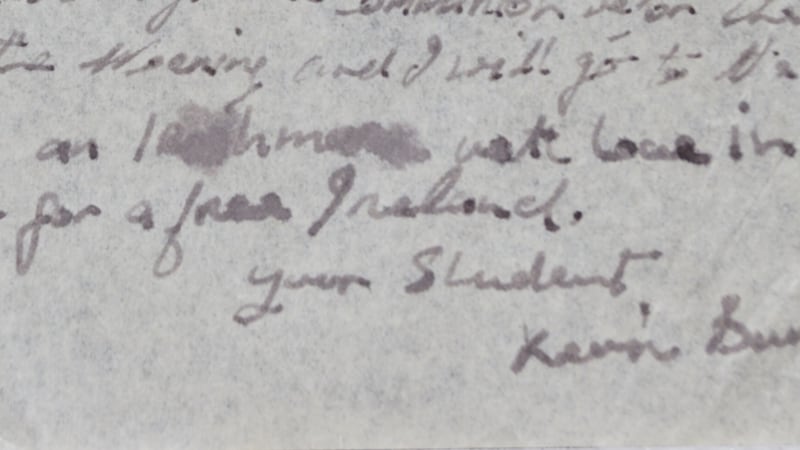 communion
the Morning and I will go to the
an Irishman with love in
for a free Ireland.
your Student
Kevin